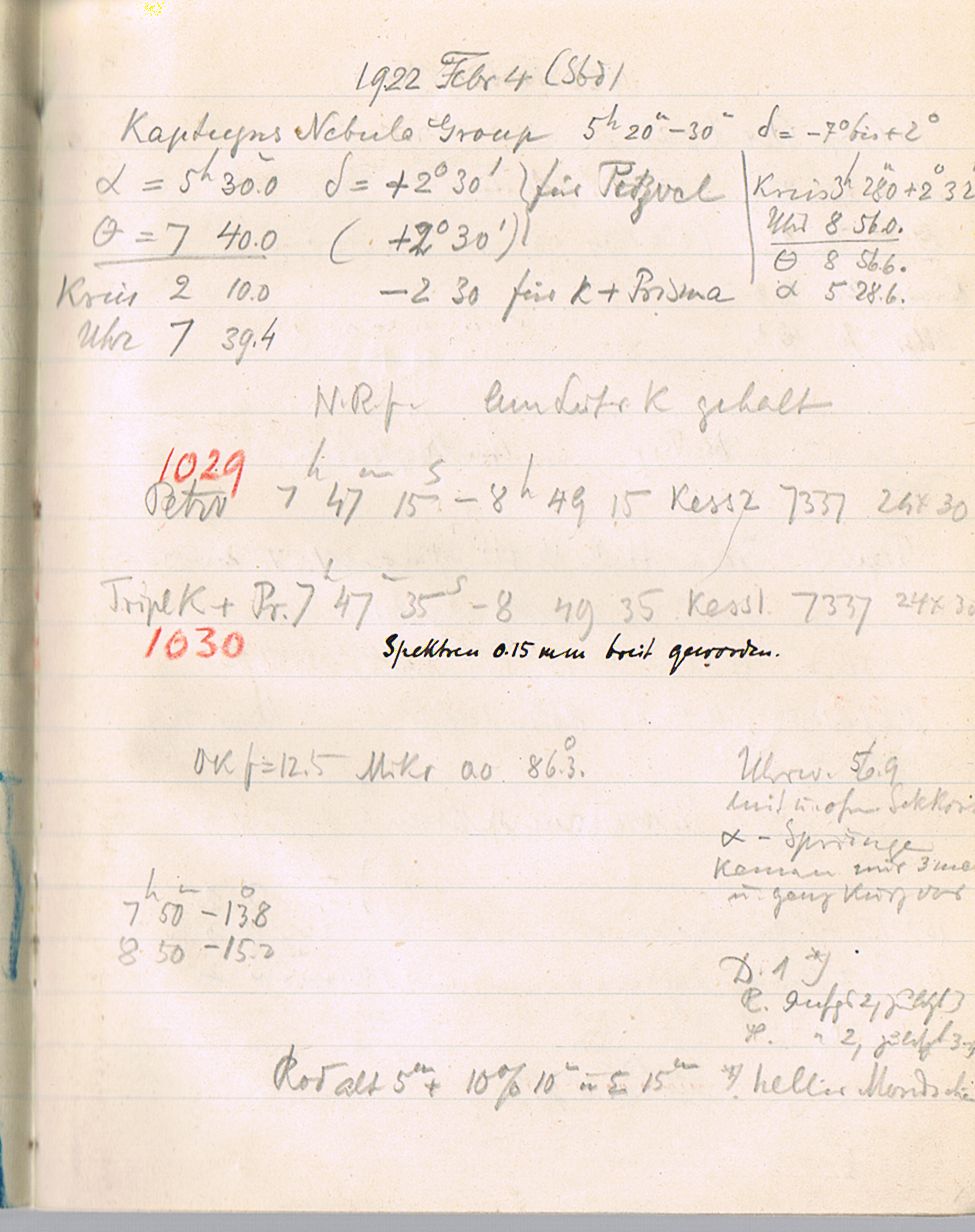 1922 Febr 4 (Sbd)
Kapteyns Nebula Group 5h 20m–30m δ = –7° bis +2°
α = 5h 30.0 δ = +2° 30' } für Petzval
θ = 7 40.0 ( +2° 30')
Kreis 2 10.0 –2 30 für K + Prisma
Uhr 7 39.4
Kreis 3h 28m0 +2° 32'
Uhr 8 56.0.
θ 8 56.6.
α 5 28.6.
N.R.f. K gehalt
1029
Petzv 7h 47m 15s – 8h 49 15 Kessl 7337 24x30
Tripl K + Pr. 7h 47m 35s – 8 49 35 Kessl. 7337 24x30
1030
Spektren 0.15 mm breit geworden.
OK f=12.5 Mikr ao 86°.3.
Uhrw. 56.9
mit u. ohne Sek Kon
α – Sprünge
kamen nur 3 ma
u. ganz kurz vor
7h 50m –13°.8
8 50 –15.2
D. 1 *)
R. Aufg 2, zuletzt 3
H. " 2, zuletzt 3
Rod alt 5m + 10% 10m u Σ 15m *) heller Mondschein